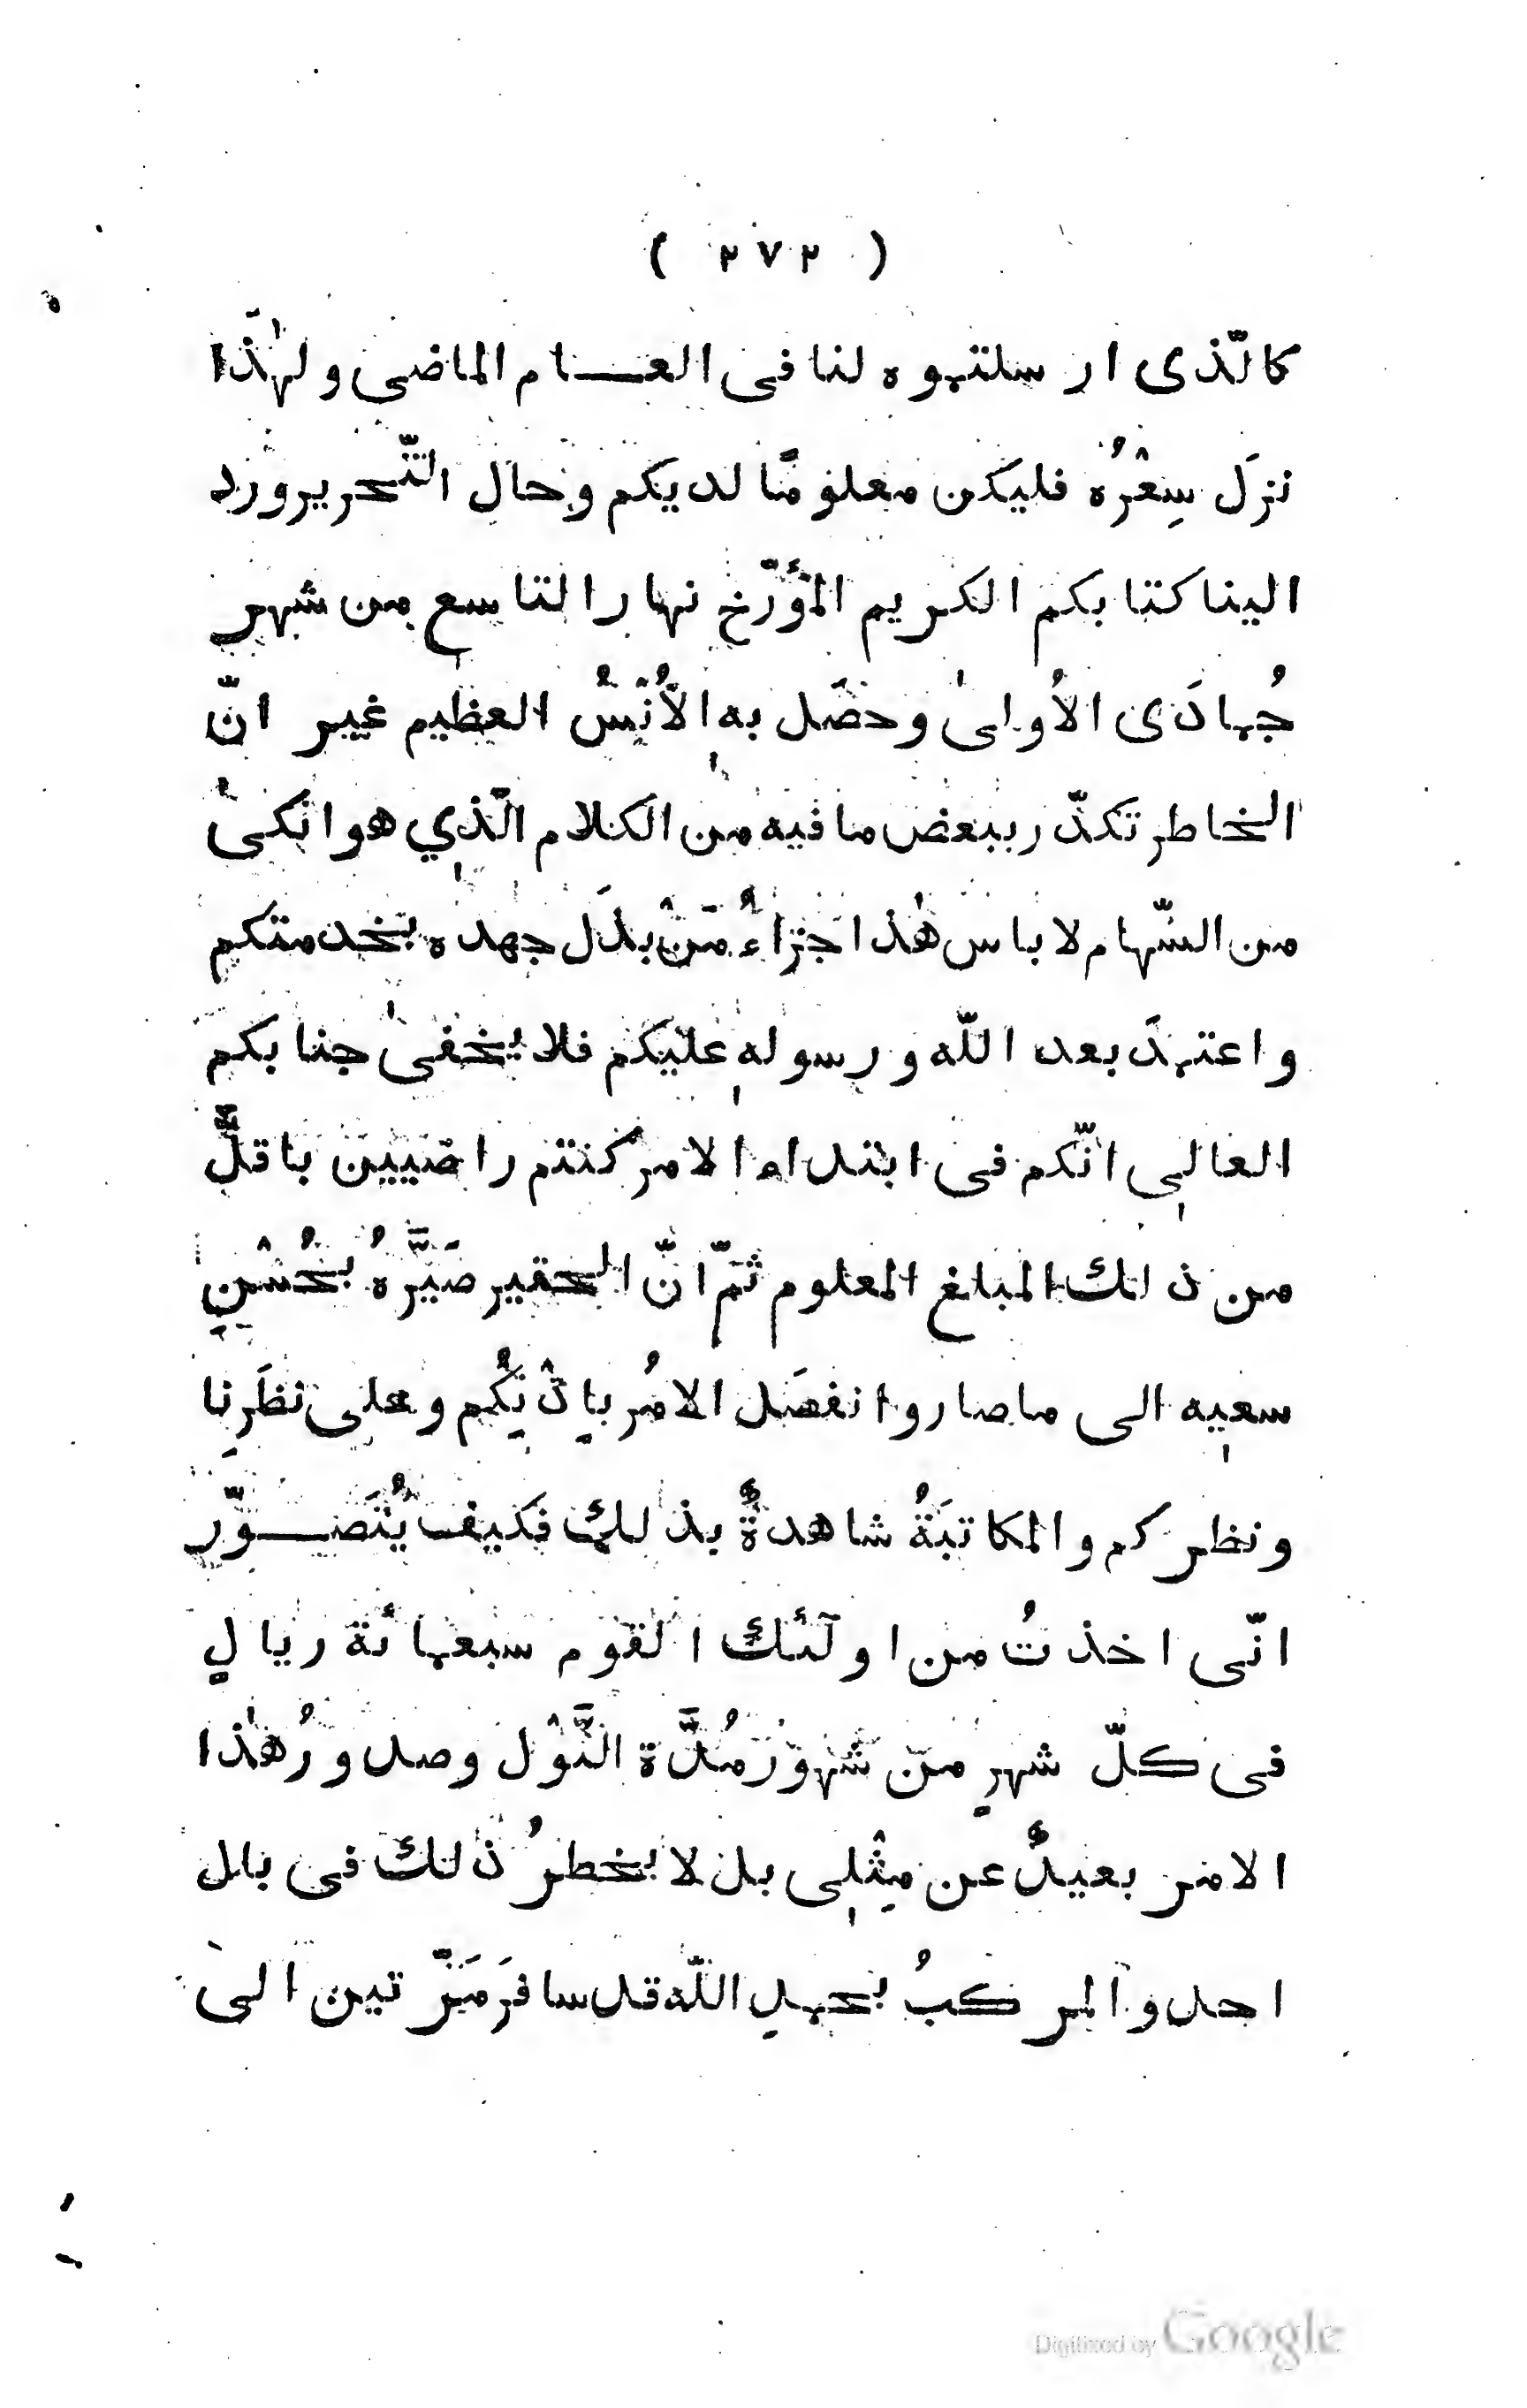 ( ٢٧٢ )
كالّذى ارسلتموه لنا فى العام الماضى ولهٰذا
نزلَ سِعْرُه فليكن معلومًا لديكم وحال التّحرير ورد
الينا كتابكم الكريم المؤَرّخ نهار التاسع من شهر
جُمادَى الاُولىٰ وحصَل به الاُنْسُ العظيم غير انّ
الخاطر تكدّر ببعض ما فيه من الكلام الّذي هو انكىٰ
من السّهام لا باس هٰذا جزاءُ مَنْ بذَل جهده بخدمتكم
واعتمدَ بعد اللّه ورسوله عليكم فلا يخفىٰ جنابكم
العالى انّكم فى ابتداء الامر كنتم راضيين باقلَّ
من ذالك المبلغ المعلوم ثمّ انّ الحقير صَيَّرَهُ بحُسْنِ
سعيه الى ما صار وانفصَل الامُر باِذْنِكُم وعلى نظَرِنا
ونظركم والمكاتبَةُ شاهدةٌ بذلك فكيف يُتَصَوّر
انّى اخذتُ من اولَئك القوم سبعمائة ريالٍ
فى كلّ شهرٍ من شهورِ مُدَّة النَّوْل وصدورُ هٰذا
الامر بعيدٌ عن مِثْلِى بل لا يخطرُ ذلك فى بال
احد والمركبُ بحمدِ اللّه قد سافرَ مَرّتين الى
Digitized by Google